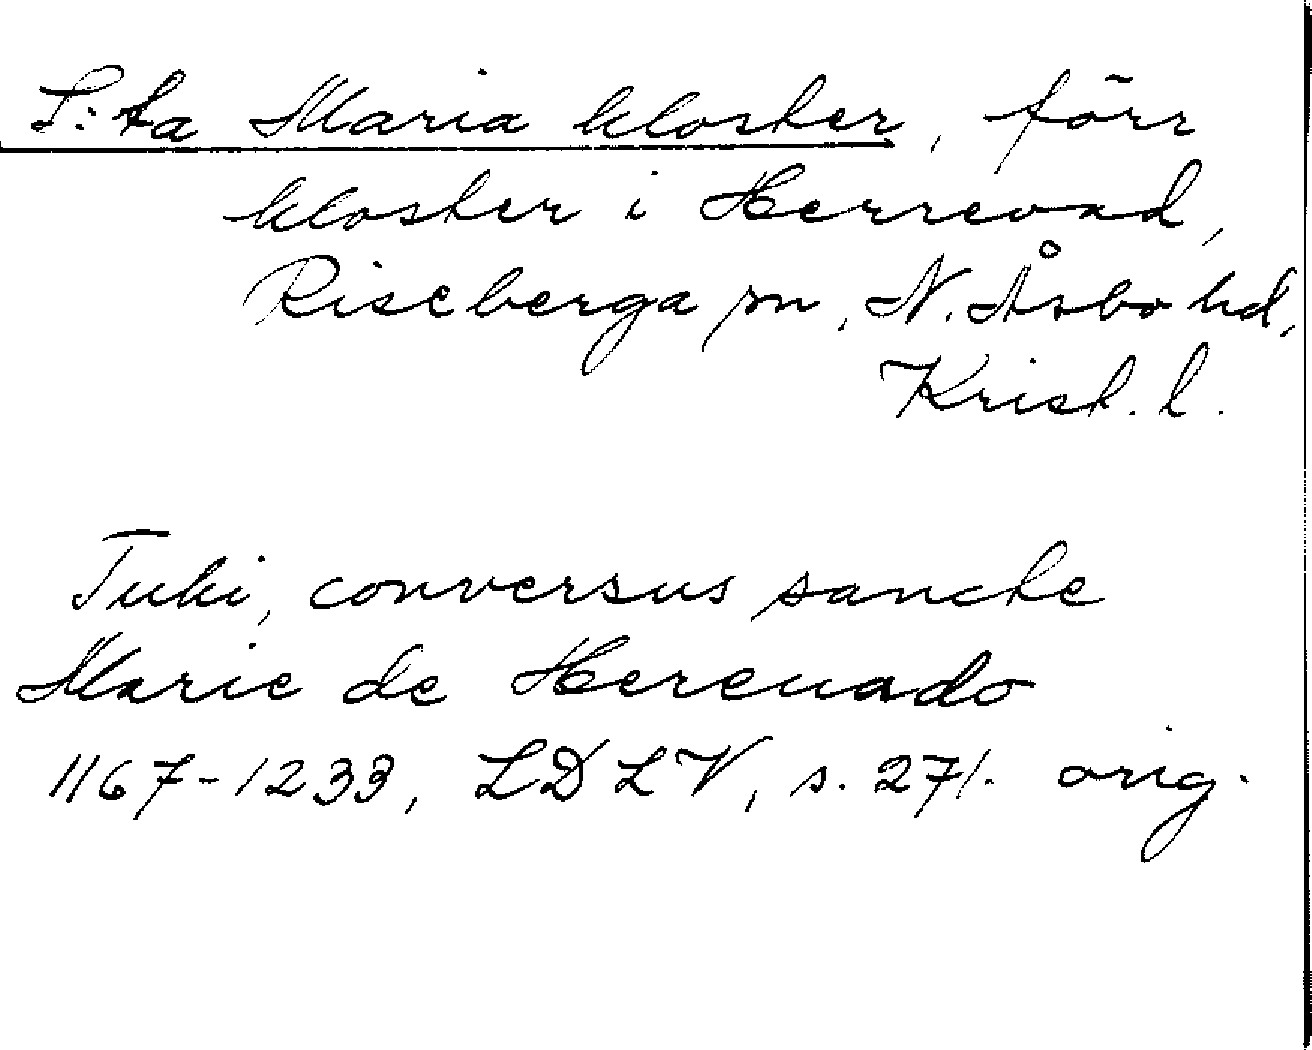 S:ta Maria kloster, förr
kloster i Herrevad,
Riseberga sn, N. Åsbo hd,
Krist. l.
Tuki, conversus sancte
Marie de Hereuado
1167-1233, LDLV, s. 271. orig.